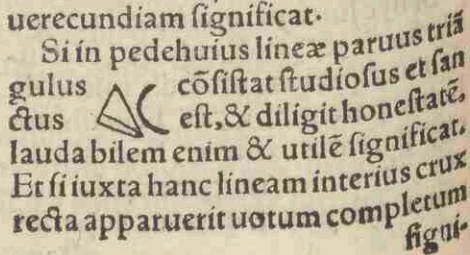 uerecundiam ſignificat.
Si in pede huius lineæ paruus triã
gulus cõſiſtat ſtudioſus et ſan
ctus eſt, & diligit honeſtatẽ,
lauda bilem enim & utilẽ ſignificat.
Et ſi iuxta hanc lineam interius crux
recta apparuerit uotum completum
ſigni-